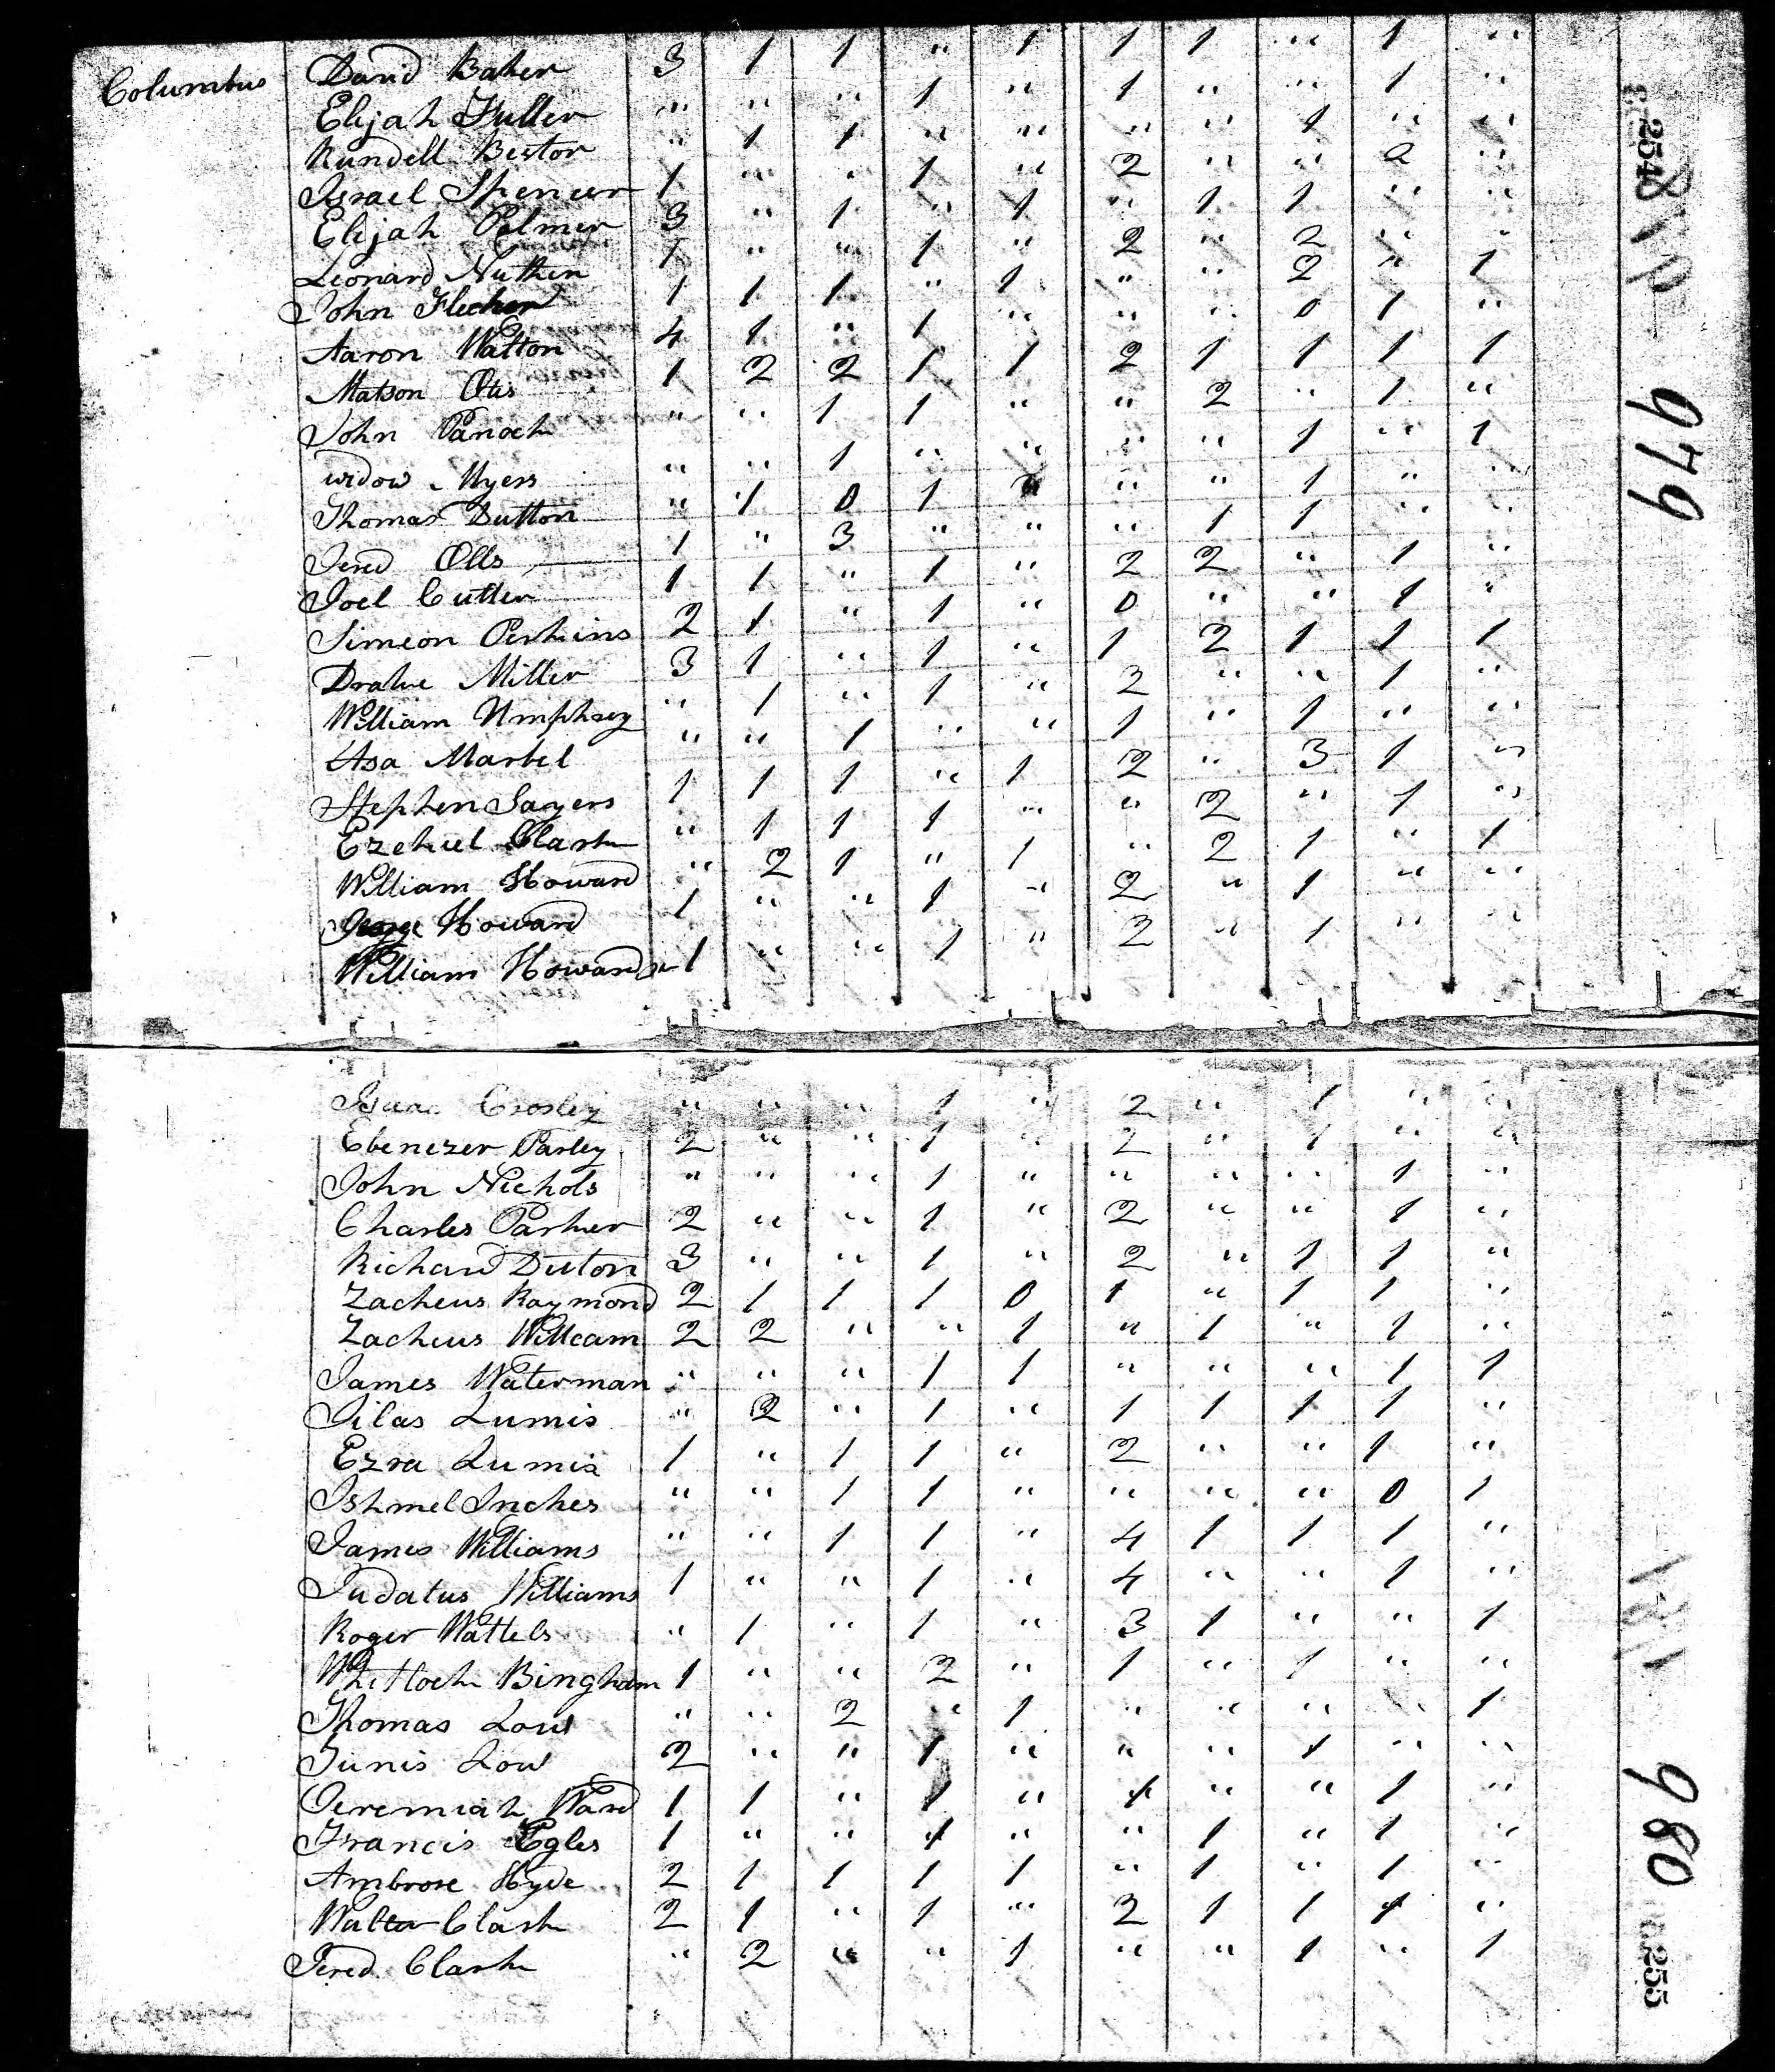 Columbus David Baker 3 1 1 " 1 1 1 " 1 "
Elijah Fuller " " " 1 " 1 " " 1 "
Rundell Bestor " 1 1 " " " " 1 " "
Israel Spencer 1 " " 1 " 2 " " 2 "
Elijah Palmer 3 " 1 " 1 " 1 1 " "
Leonard 1 " " 1 " 2 " 2 " "
John Flecher 1 1 1 " 1 " " 2 " 1
Aaron Walton 4 1 " 1 " " " 0 1 "
Matson Otis 1 2 2 1 1 2 1 1 1 1
John " " 1 1 " " 2 " 1 "
widow Myers " " 1 " " " " 1 " 1
Thomas Dutton " 1 0 1 " " " 1 " "
Jered Olls 1 " 3 " " " 1 1 " "
Joel Cutler 1 1 " 1 " 2 2 " 1 "
Simeon Perkins 2 1 " 1 " 0 " " 1 "
Drake Miller 3 1 " 1 " 1 2 1 1 1
William Umphrey " 1 " 1 " 2 " " 1 "
Asa Marbel " " 1 " " 1 " 1 " "
Stephen Sayers 1 1 1 " 1 2 " 3 1 "
Ezekiel Clark " 1 1 1 " " 2 " 1 "
William Howard " 2 1 " 1 " 2 1 " 1
George Howard 1 " " 1 " 2 " 1 " "
William Howard Jr 1 " " 1 " 2 " 1 " "
254
979
Isaac Crosley " " " 1 " 2 " 1 " "
Ebenezer Parley 2 " " 1 " 2 " 1 " "
John Nichols " " " 1 " " " " 1 "
Charles Parker 2 " " 1 " 2 " " 1 "
Richard Duton 3 " " 1 " 2 " 1 1 "
Zacheus Raymond 2 1 1 1 0 1 " 1 1 "
Zacheus Willeam 2 2 " " 1 " 1 " 1 "
James Waterman " " " 1 1 " " " 1 1
Silas Lumis " 2 " 1 " 1 1 1 1 "
Ezra Lumis 1 " 1 1 " 2 " " 1 "
Ishmel Inches " " 1 1 " " " " 0 1
James Williams " " 1 1 " 4 1 1 1 "
Judatus Williams 1 " " 1 " 4 " " 1 "
Roger Wattels " 1 " 1 " 3 1 " " 1
Whitlock Bingham 1 " " 2 " 1 " 1 " "
Thomas Low " " 2 " 1 " " " " 1
Tunis Low 2 " " 1 " " " 1 " "
Jeremiah Ward 1 1 " 1 " 1 " " 1 "
Francis Egles 1 " " 1 " " 1 " 1 "
Ambrose Hyde 2 1 1 1 1 " 1 " 1 "
Walter Clark 2 1 " 1 " 2 1 1 1 "
Jered Clark " 2 " " 1 " " 1 " 1
980
255